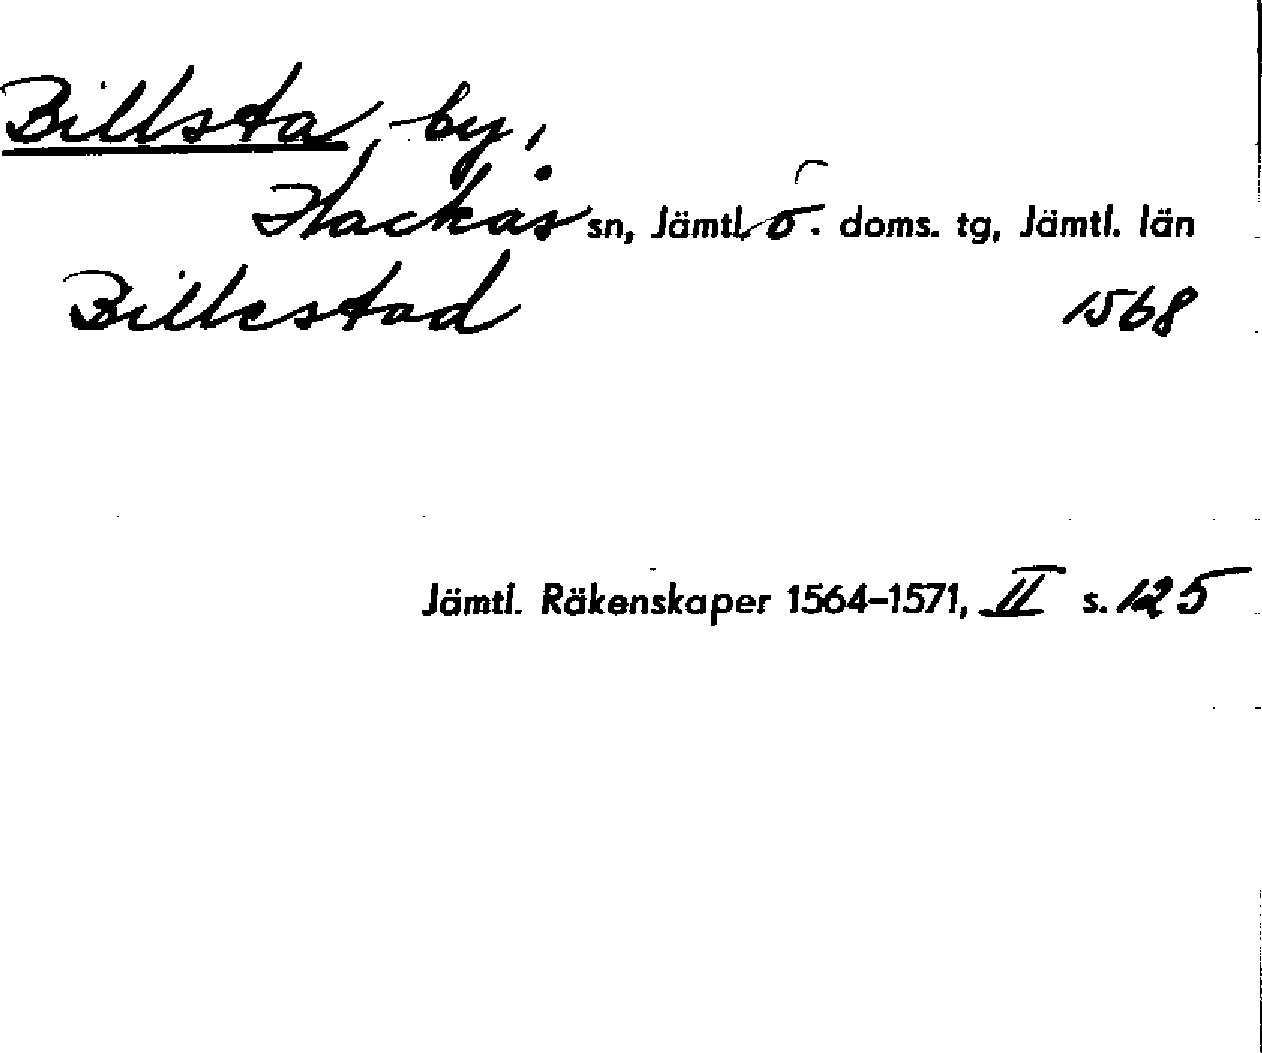 Billsta, by,
Hackås sn, Jämtl. ö. doms. tg, Jämtl. län
Billestad 1568
Jämtl. Räkenskaper 1564–1571, II s. 125